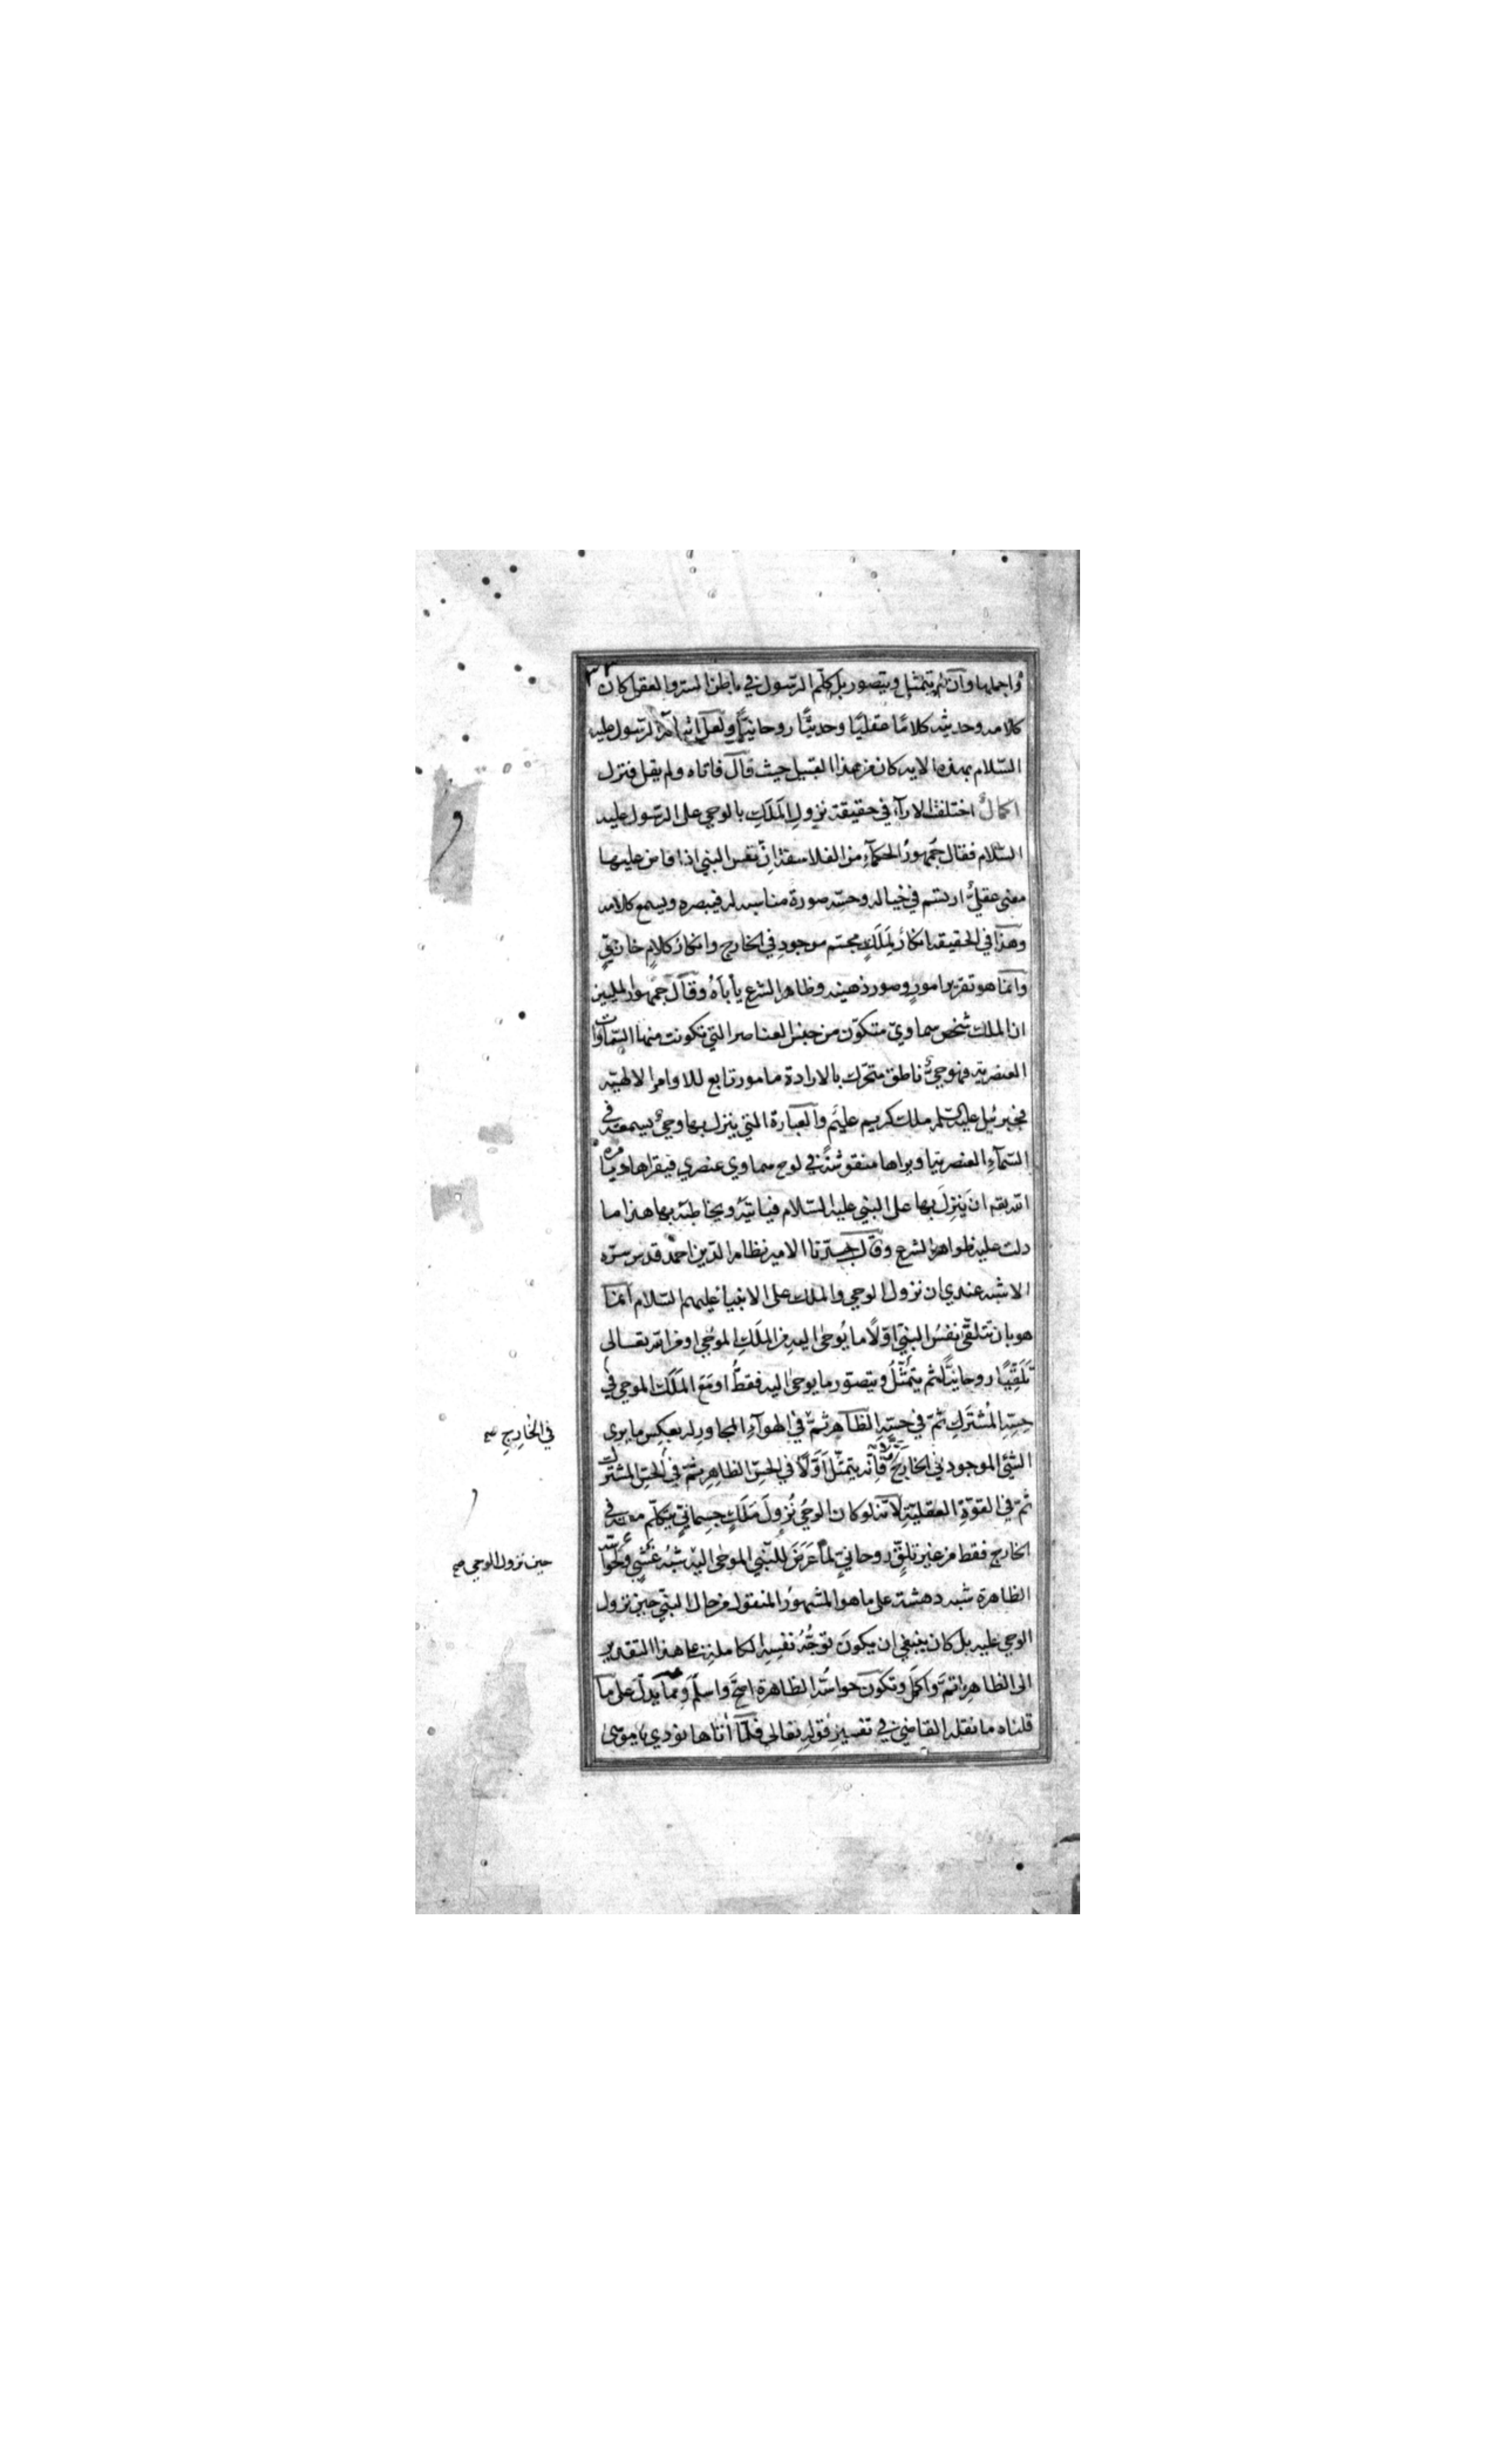 ٣٣
واجملها وان لم يتمثل ويتصور بل كلّم الرسول في باطن السر والعقل كان
كلامه وحديثه كلامًا عقليًا وحديثًا روحانيًّا ولعل اتيانه الرسول عليه
السّلام بهذه الاية كان من هذا القبيل حيث قال فاتاه ولم يقل فنزل
اكمال اختلف الاراء في حقيقة نزول المَلَكِ بالوحي على الرسول عليه
السّلام فقال جمهورُ الحكمآءِ من الفلاسفة اِنّ نفس النبي اذا فاض عليها
معنى عقليٌّ ارتسم في خياله وحسّه صورة مناسبة له فيبصره ويسمع كلامه
وهذا في الحقيقة انكارٌ لِمَلَكٍ مجسّم موجودٍ في الخارج وانكارُ كلامٍ خارجيٍّ
وانما هو تقرير امورٍ وصور ذهنية وظاهر الشرع يأباهُ وقال جمهور المليين
ان الملك شخص سماوي متكوّن من جنس العناصر التي تكونت منها السّماوات
العنصرية فهو حيٌّ ناطق متحرّك بالارادة مامور تابع للاوامر الالهيّة
فجبرئيل عليه السّلم ملك كريم عليم والعبارة التي ينزل بها وحيٌ يسمعه في
السّمآءِ العنصرية او يراها منقوشة في لوح سماوي عنصري فيقراها ويامره
الله تعم ان يَنزِلَ بها على النبي عليه السّلام فياتيه ويخاطبه بها هذا ما
دلت عليه ظواهر الشرع وقال جدّنا الامير نظام الدّين احمد قدس سرّه
الاشبه عندي ان نزول الوحي والملك على الانبياءِ عليهم السّلام انما
هو بان تتلقّى نفسُ النبيّ اوّلًا ما يُوحىٰ اليه من المَلَكِ الموُحِي او من الله تعالى
تَلَقِّيًا روحانيًّا ثم يتَمثّلُ ويتصوّر ما يوحىٰ اليه فقطُ او مَعَ المَلَكِ الموحي في
حِسِّهِ المُشتَركِ ثمّ في حسِّه الظاهر ثمّ في الهوآءِ المجاورِ له بعكسِ ما يرى
في الخارِجِ
الشّئ الموجود في الخارج فانّه يتمثّل اَوّلًا في الحسّ الظاهر ثم في الحسّ المشترك
ثمّ في القوّةِ العقليّةِ لانّه لو كان الوحيُ نُزولَ مَلَكٍ جِسمانيٍّ يتكلّم معه في
الخارج فقط من غير تلقٍّ روحانيٍّ لما عَرَضَ للنّبي الموحىٰ اليه شبهُ غَشْيٍ ولحواسّه
حين نزول الوحي
الظاهرة شبه دهشة على ما هو المشهورُ المنقول من حال النبيّ حين نزول
الوحي عليه بل كان ينبغي ان يكونَ توجُّهُ نفسِه الكاملة على هذا التقدير
الى الظاهر اتمَّ واكملَ وتكون حواسُّه الظاهرة اصحَّ واسلمَ ومما يدلّ على ما
قلناه ما نقله القاضي في تفسيرِ قولِه تعالى فلمّا أتاها نودي يا موسىٰ